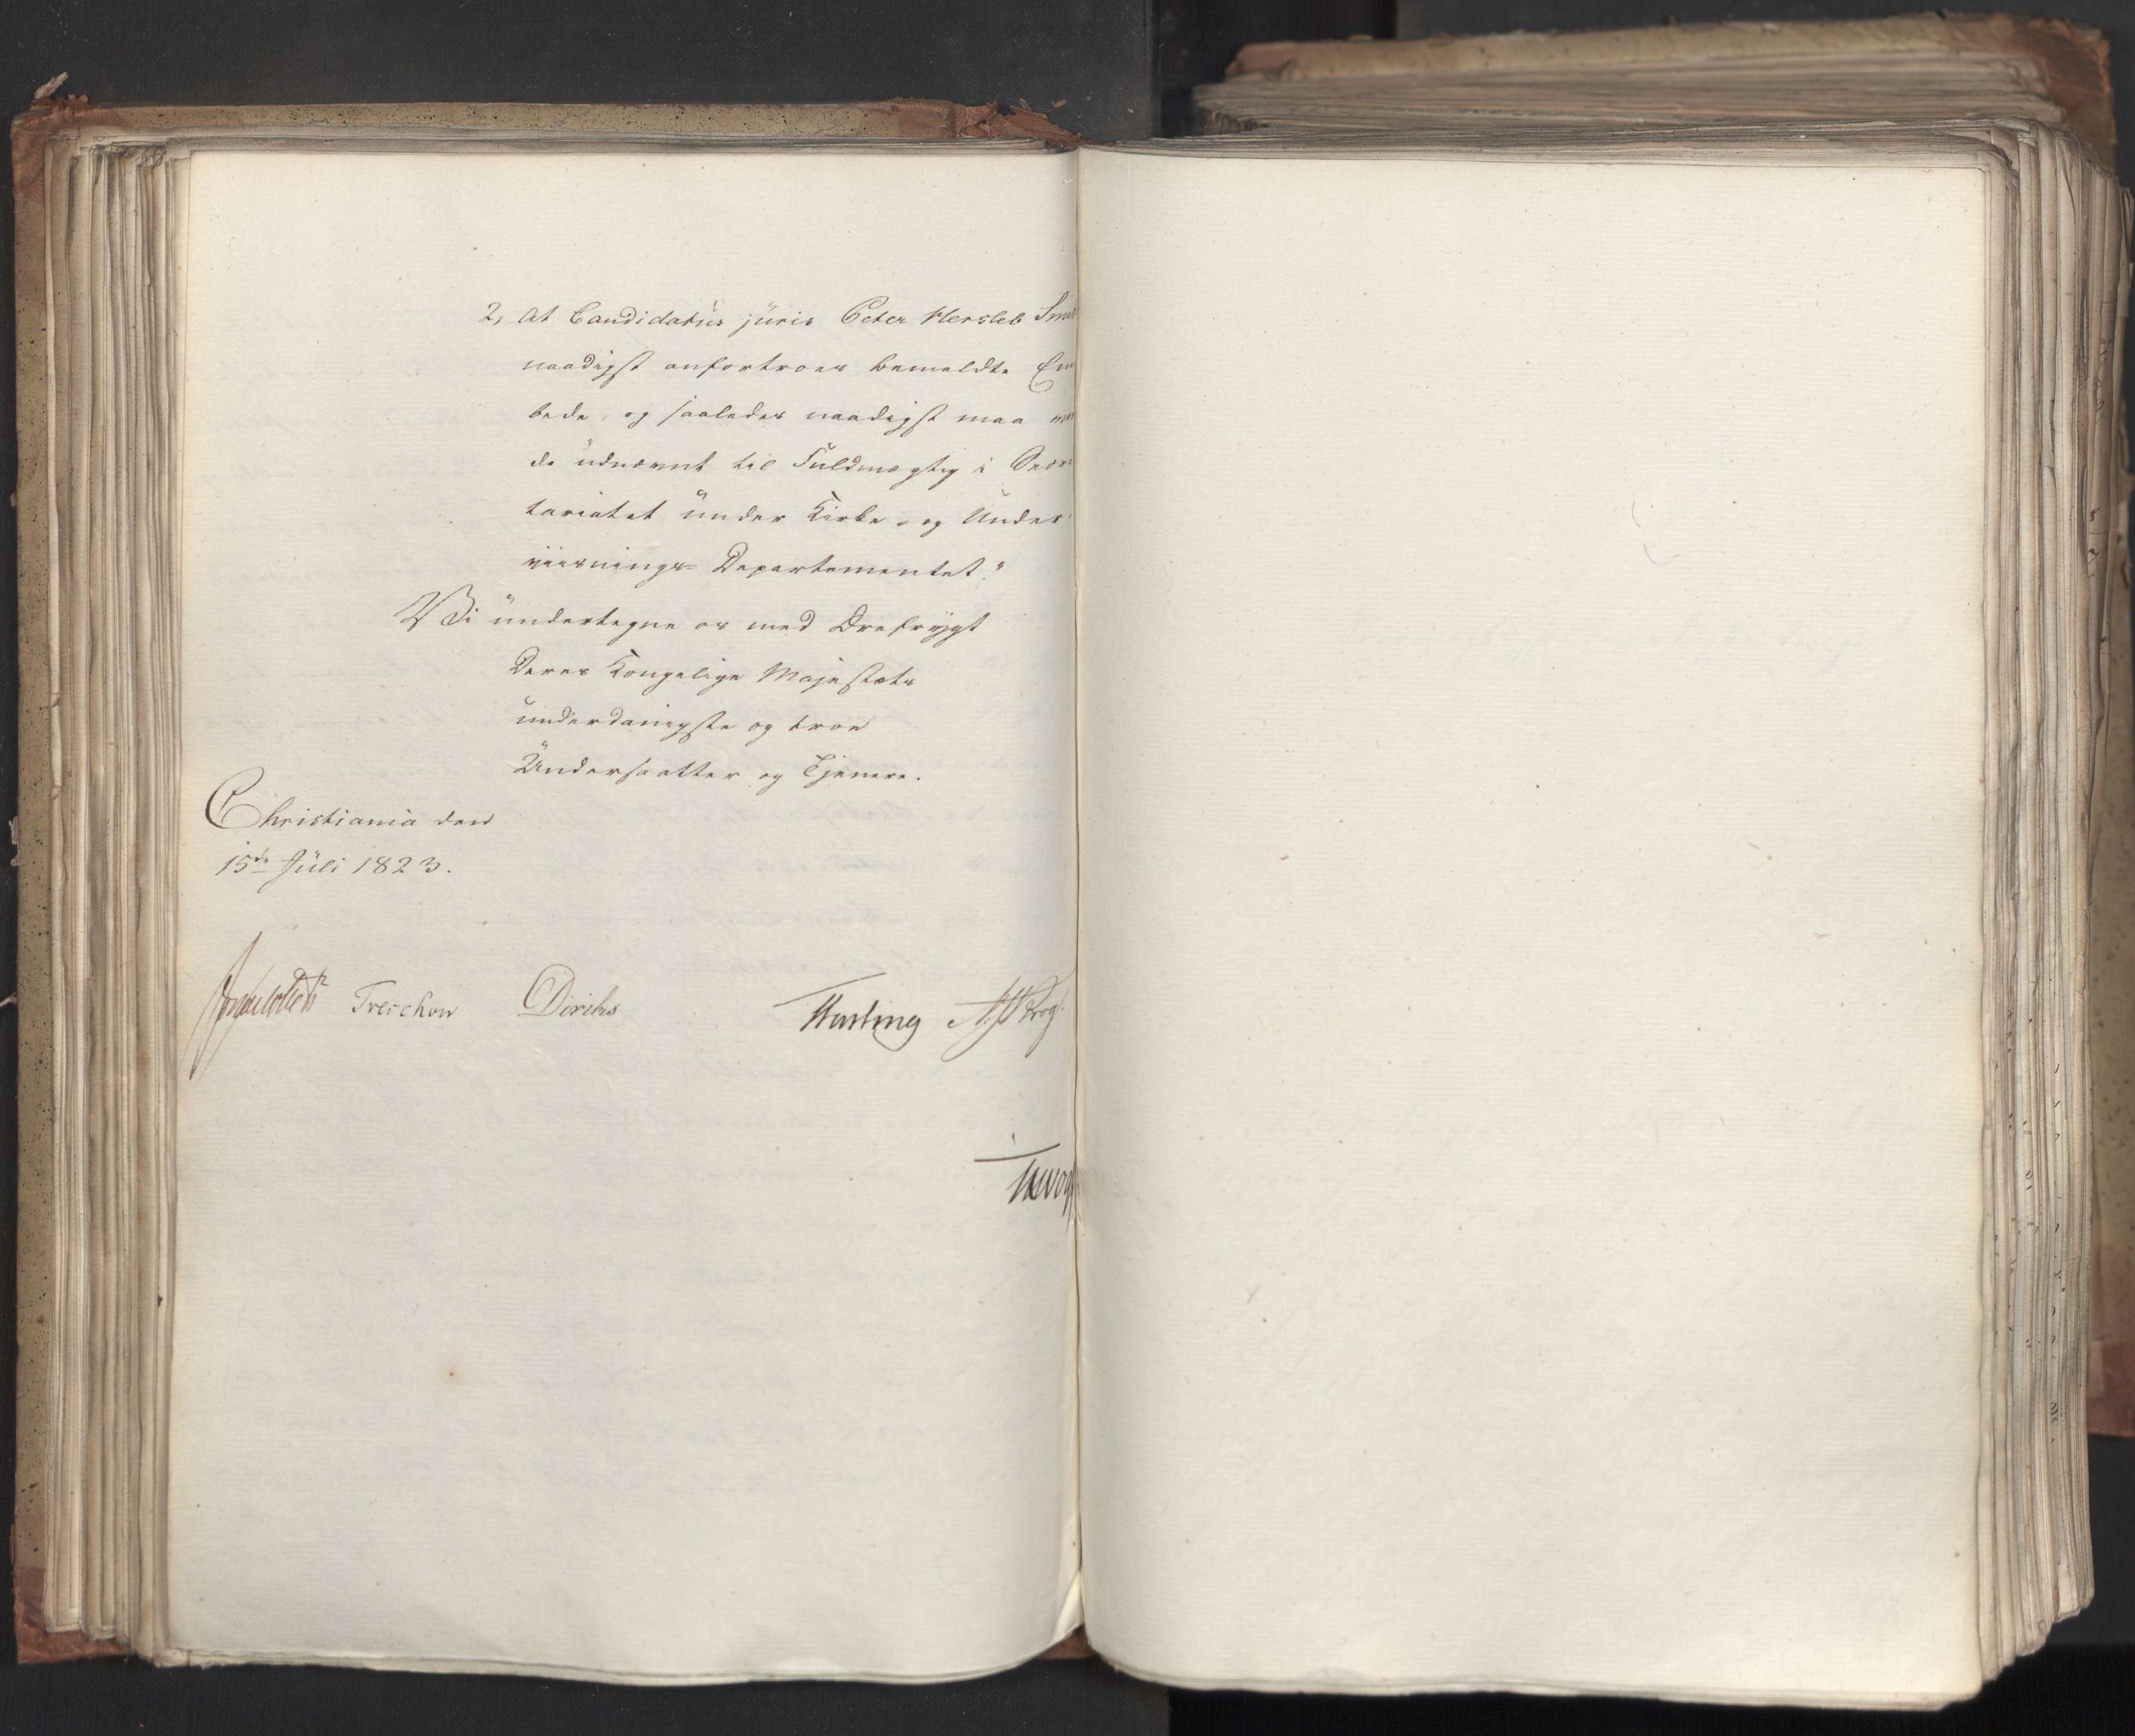 2, At Candidatus juris Peter Hersleb
naadigst anfortroes bemeldte Em
bede, og saaledes naadigst maa
de udnævnt til Fuldmægtig i Secre
tariatet under Kirke- og Under
viisnings- Departementet."
Vi undertegne os med Ærefrygt
Deres Kongelige Majestæts
underdanigste og troe
Undersaatter og Tjenere.
Christiania den
15de Juli 1823.
Treschow Diriks Fasting Krog